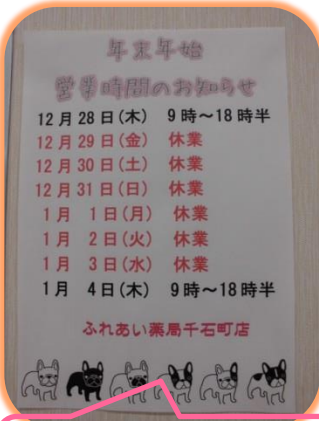 年末年始
営業時間のお知らせ
12月28日(木) 9時~18時半
12月29日(金) 休業
12月30日(土) 休業
12月31日(日) 休業
1月 1日(月) 休業
1月 2日(火) 休業
1月 3日(水) 休業
1月 4日(木) 9時~18時半
ふれあい薬局千石町店